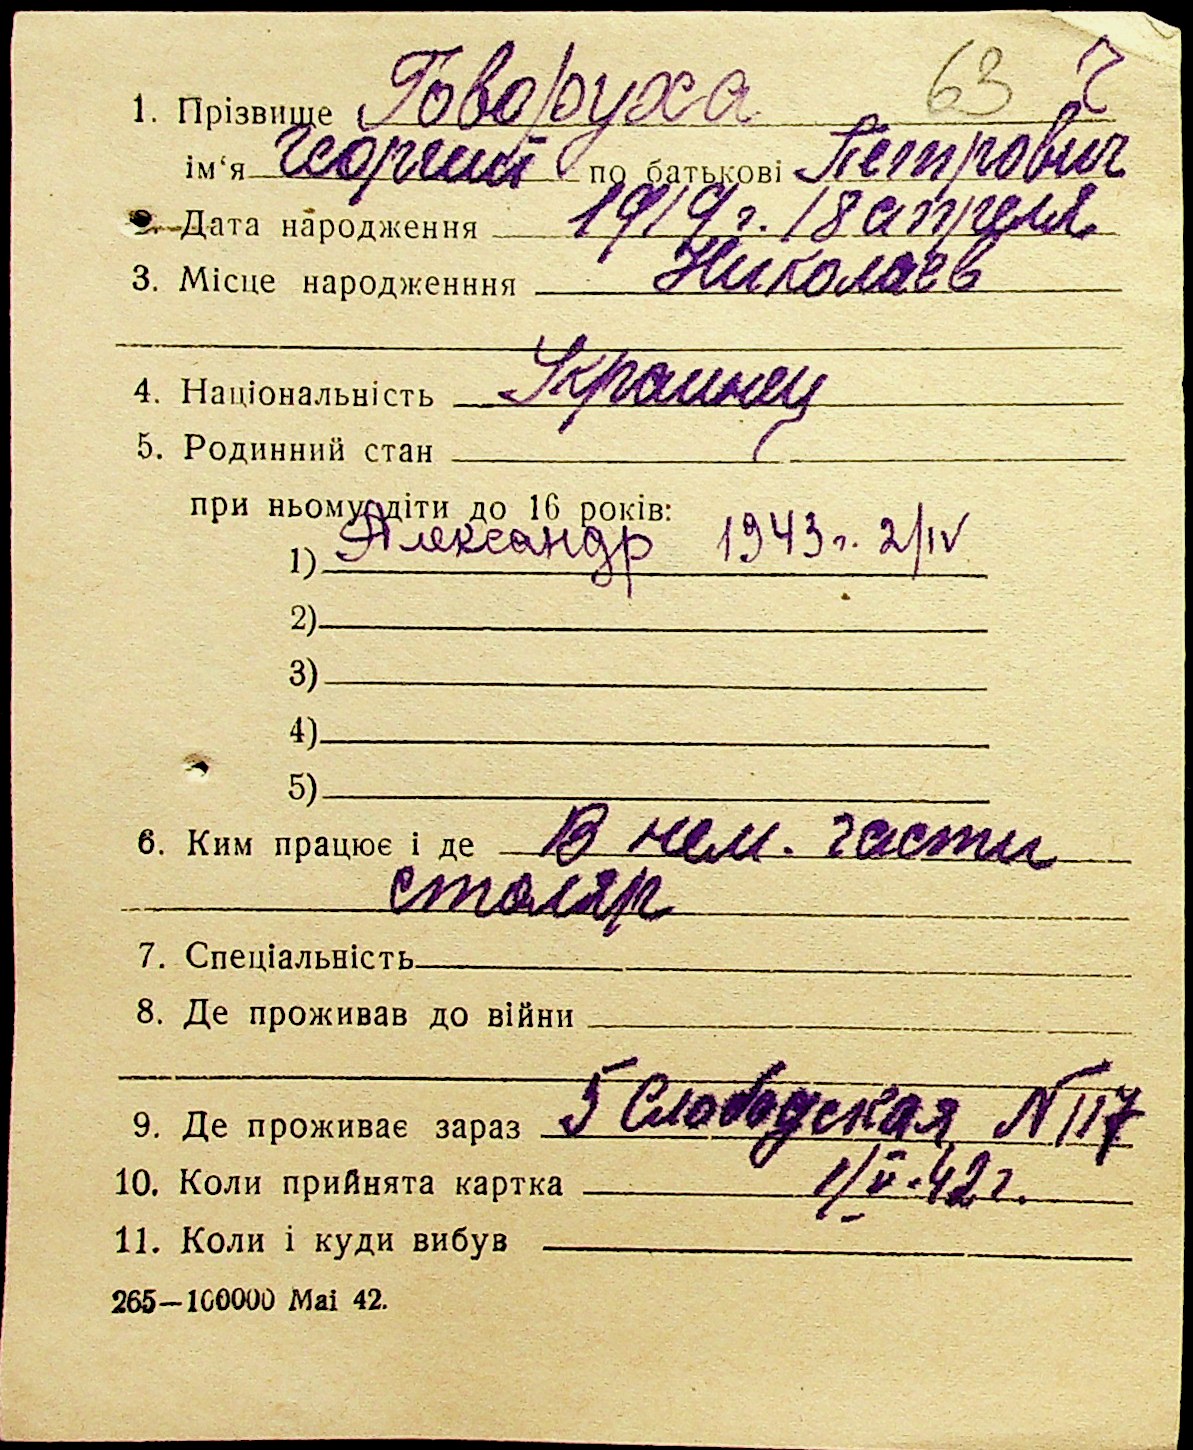 63 Г
1. Прізвище Говоруха
ім‘я Георгий по батькові Петрович
2. Дата народження 1919 г. 18 апреля
3. Місце народженння Николаев
4. Національність Украинец
5. Родинний стан
при ньому діти до 16 років:
1) Александр 1943 г. 2/IV
2)
3)
4)
5)
6. Ким працює і де В нем. части
столяр
7. Спеціальність
8. Де проживав до війни
9. Де проживає зараз 5 Слободская N 117
10. Коли прийнята картка 1/V-42 г.
11. Коли і куди вибув
265—100000 Mai 42.